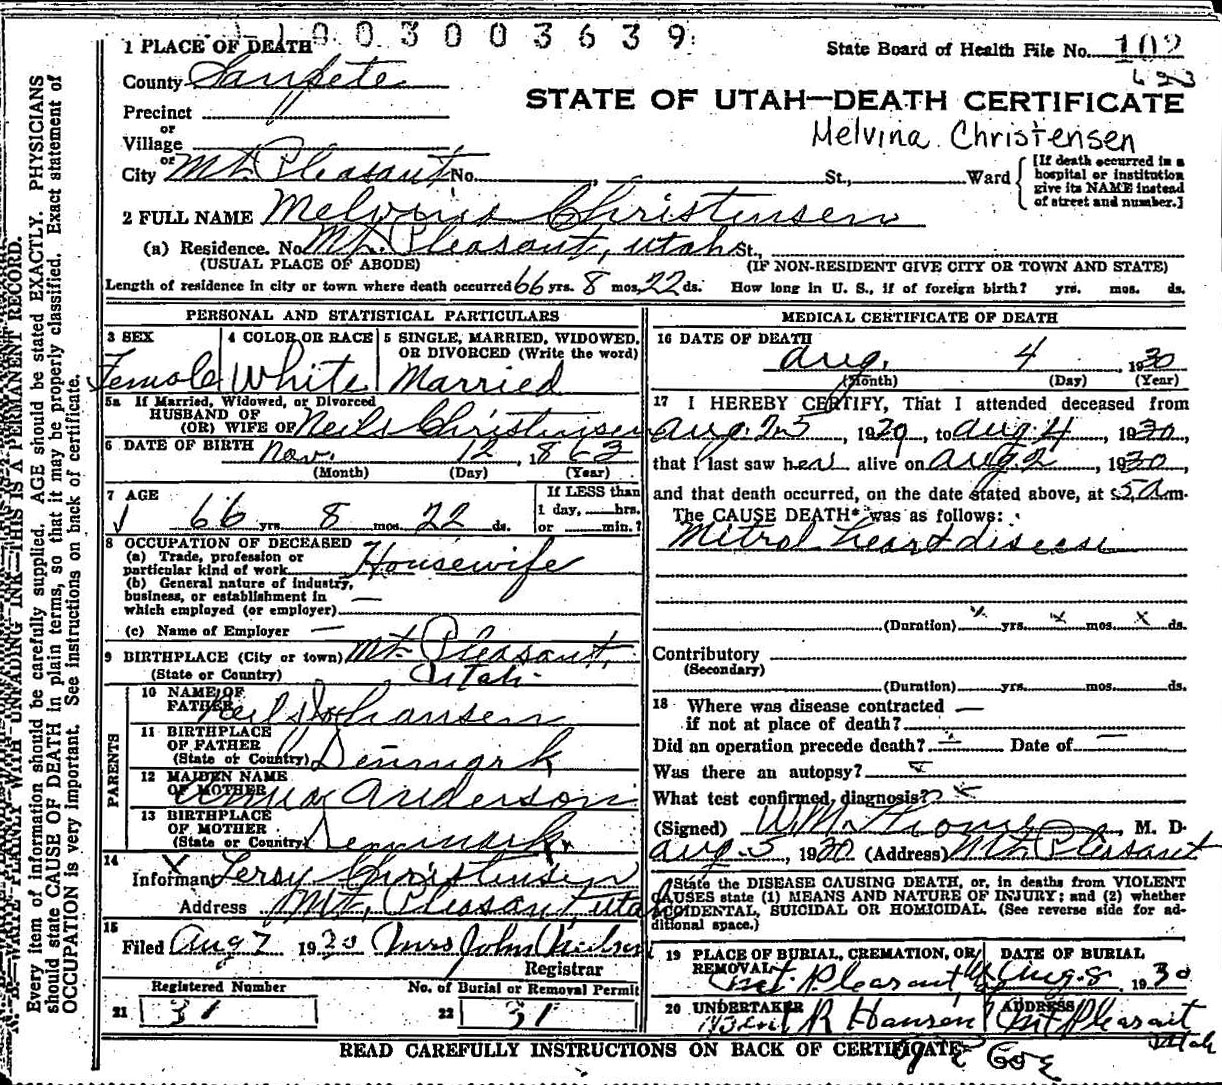 1003003639
1 PLACE OF DEATH
State Board of Health File No. 102
County Sanpete
STATE OF UTAH—DEATH CERTIFICATE
Precinct
Melvina Christensen
or
Village
or
City Mt. Pleasant No. , St., Ward
[If death occurred in a hospital or institution give its NAME instead of street and number.]
2 FULL NAME Melvina Christensen
(a) Residence. No. Mt. Pleasant, Utah St.,
(USUAL PLACE OF ABODE) (IF NON-RESIDENT GIVE CITY OR TOWN AND STATE)
Length of residence in city or town where death occurred 66 yrs. 8 mos. 22 ds. How long in U. S., if of foreign birth? yrs. mos. ds.
PERSONAL AND STATISTICAL PARTICULARS
3 SEX 4 COLOR OR RACE 5 SINGLE, MARRIED, WIDOWED, OR DIVORCED (Write the word)
Female White Married
5a If Married, Widowed, or Divorced
HUSBAND OF
(OR) WIFE OF Neils Christensen
6 DATE OF BIRTH Nov. 12, 1863
(Month) (Day) (Year)
7 AGE
66 yrs. 8 mos. 22 ds.
If LESS than
1 day, hrs.
or min.?
8 OCCUPATION OF DECEASED
(a) Trade, profession or
particular kind of work Housewife
(b) General nature of industry,
business, or establishment in
which employed (or employer)
(c) Name of Employer —
9 BIRTHPLACE (City or town) Mt. Pleasant,
(State or Country) Utah.
PARENTS
10 NAME OF
FATHER Neil Johansen
11 BIRTHPLACE
OF FATHER
(State or Country) Denmark
12 MAIDEN NAME
OF MOTHER Anna Anderson
13 BIRTHPLACE
OF MOTHER
(State or Country) Denmark
14
Informant Leroy Christensen
Address Mt. Pleasant Utah
15
Filed Aug 7 1930 Mrs John
Registrar
Registered Number No. of Burial or Removal Permit
21 31 22 31
MEDICAL CERTIFICATE OF DEATH
16 DATE OF DEATH
Aug. 4 1930
(Month) (Day) (Year)
17 I HEREBY CERTIFY, That I attended deceased from
Aug. 25, 1929, to Aug. 4, 1930,
that I last saw her alive on Aug. 2, 1930,
and that death occurred, on the date stated above, at 5 A.m.
The CAUSE DEATH* was as follows:
Mitral heart disease
(Duration) x yrs. x mos. x ds.
Contributory
(Secondary)
(Duration) yrs. mos. ds.
18 Where was disease contracted —
if not at place of death?
Did an operation precede death? Date of —
Was there an autopsy?
What test confirmed diagnosis?
(Signed) , M. D.
Aug. 5, 1930 (Address) Mt. Pleasant
*State the DISEASE CAUSING DEATH, or, in deaths from VIOLENT
CAUSES state (1) MEANS AND NATURE OF INJURY; and (2) whether
ACCIDENTAL, SUICIDAL OR HOMICIDAL. (See reverse side for ad-
ditional space.)
19 PLACE OF BURIAL, CREMATION, OR REMOVAL DATE OF BURIAL
Mt. Pleasant Aug. 8, 1930
20 UNDERTAKER ADDRESS
R Hansen Mt Pleasant
Utah
READ CAREFULLY INSTRUCTIONS ON BACK OF CERTIFICATE.
N. B.—WRITE PLAINLY WITH UNFADING INK—THIS IS A PERMANENT RECORD.
Every item of information should be carefully supplied. AGE should be stated EXACTLY. PHYSICIANS
should state CAUSE OF DEATH in plain terms, so that it may be properly classified. Exact statement of
OCCUPATION is very important. See instructions on back of certificate.